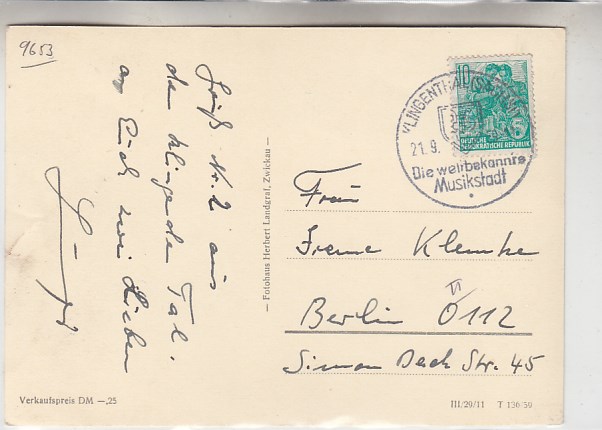 9653
Gruß Nr. 2 aus
dem klingenden Tal.
an Euch zwei Lieben
— Fotohaus Herbert Landgraf, Zwickau —
10
DEUTSCHE
DEMOKRATISCHE REPUBLIK
5
KLINGENTHAL (SACHSEN)
21.9.
Die weltbekannte
Musikstadt
Frau
Irene Klemke
Berlin O 112
Simon Dach Str. 45
Verkaufspreis DM —,25
III/29/11 T 136/59